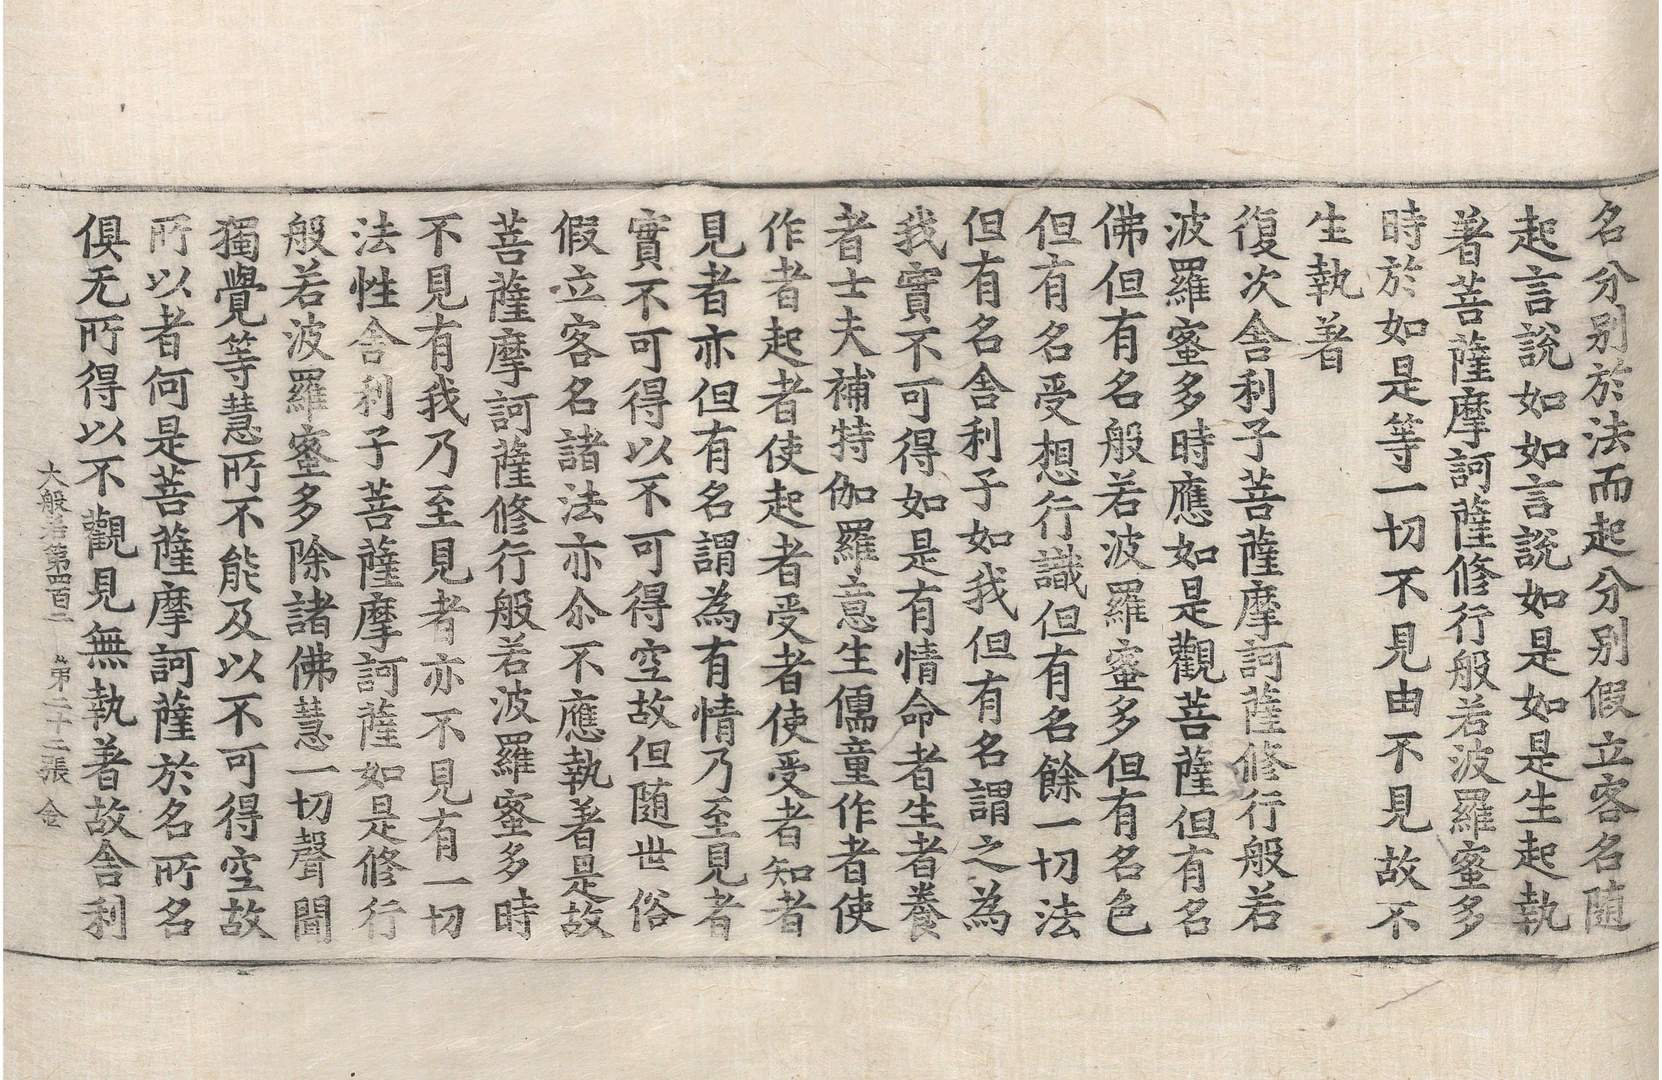 名分別於法而起分別假立客名隨
起言說如如言說如是如是生起執
著菩薩摩訶薩修行般若波羅蜜多
時於如是等一切不見由不見故不
生執著
復次舍利子菩薩摩訶薩修行般若
波羅蜜多時應如是觀菩薩但有名
佛但有名般若波羅蜜多但有名色
但有名受想行識但有名餘一切法
但有名舍利子如我但有名謂之為
我實不可得如是有情命者生者養
者士夫補特伽羅意生儒童作者使
作者起者使起者受者使受者知者
見者亦但有名謂為有情乃至見者
實不可得以不可得空故但随世俗
假立客名諸法亦尒不應執著是故
菩薩摩訶薩修行般若波羅蜜多時
不見有我乃至見者亦不見有一切
法性舍利子菩薩摩訶薩如是修行
般若波羅蜜多除諸佛慧一切聲聞
獨覺等慧所不能及以不可得空故
所以者何是菩薩摩訶薩於名所名
俱无所得以不觀見無執著故舍利
大般若第四百二 第二十二張 金